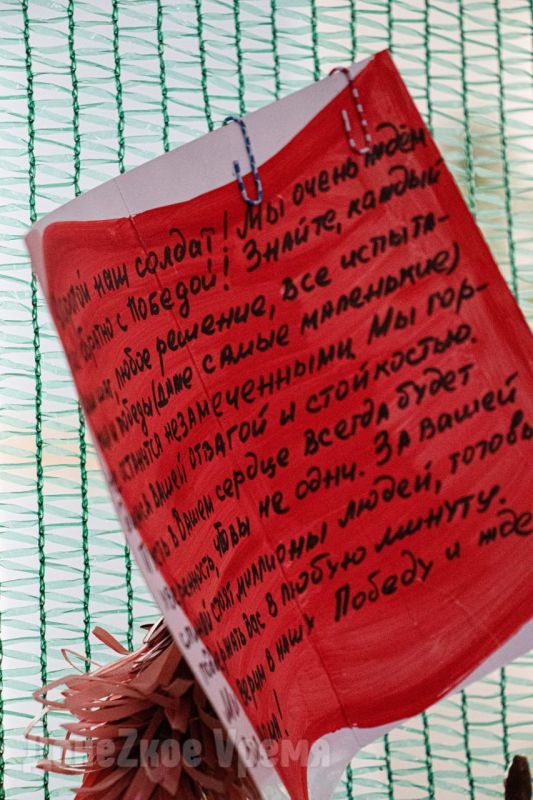 наш солдат! Мы очень ждём
обратно с Победой! Знайте, каждый
любое решение, все испыта-
и победы (даже самые маленькие)
останутся незамеченными. Мы гор-
вашей отвагой и стойкостью.
в Вашем сердце всегда будет
что вы не одни. За вашей
стоят миллионы людей, готовы
вас в любую минуту.
Верим в нашу Победу и жде
ДонеZкое Vремя